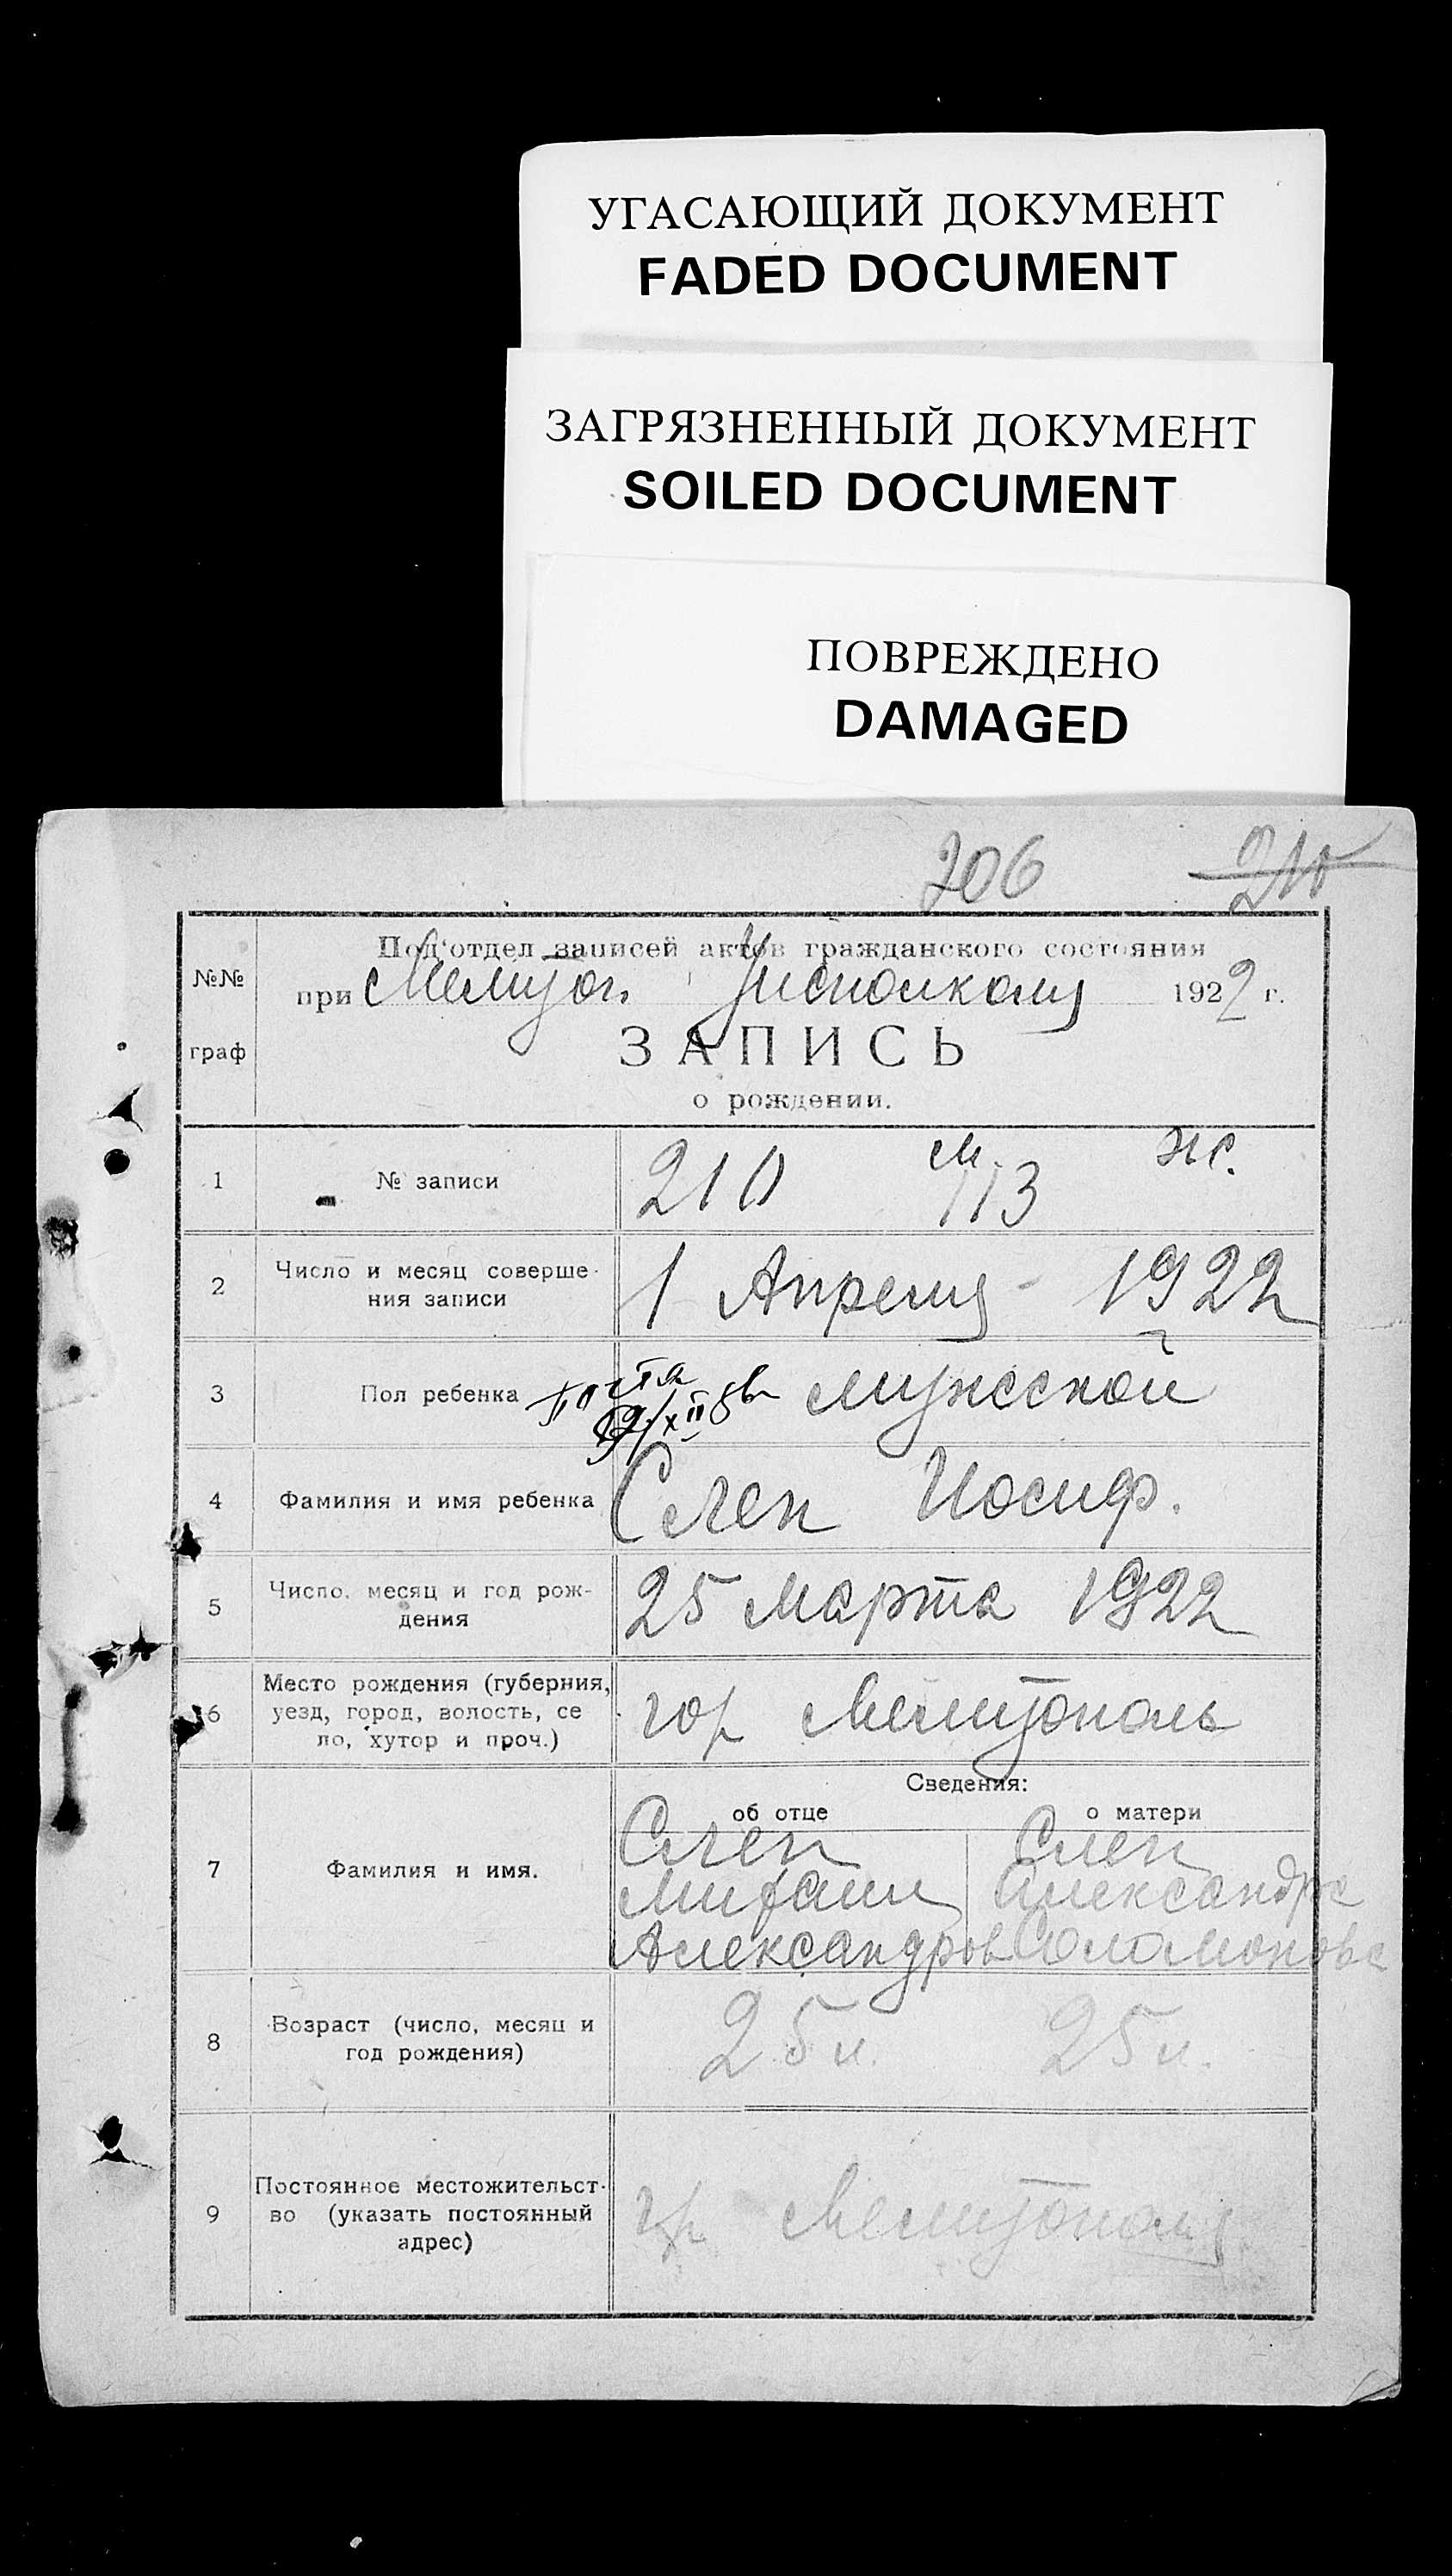 УГАСАЮЩИЙ ДОКУМЕНТ
FADED DOCUMENT
ЗАГРЯЗНЕННЫЙ ДОКУМЕНТ
SOILED DOCUMENT
ПОВРЕЖДЕНО
DAMAGED
206 210
№№ граф
Под'отдел записей актов гражданского состояния
при Мелитоп. Уисполкому 1922 г.
ЗАПИСЬ
о рождении.
1 № записи 210 м. 113 ж.
2 Число и месяц соверше-
ния записи 1 Апреля 1922
3 Пол ребенка мужской
4 Фамилия и имя ребенка Слеп Иосиф.
5 Число, месяц и год рож-
дения 25 марта 1922
6 Место рождения (губерния,
уезд, город, волость, се
ло, хутор и проч.) гор Мелитополь
Сведения:
об отце о матери
7 Фамилия и имя. Слеп Слеп
Михаил Александра
Александров Соломоновна
8 Возраст (число, месяц и
год рождения) 25 л. 25 л.
9 Постоянное местожительст-
во (указать постоянный
адрес) гор Мелитополь